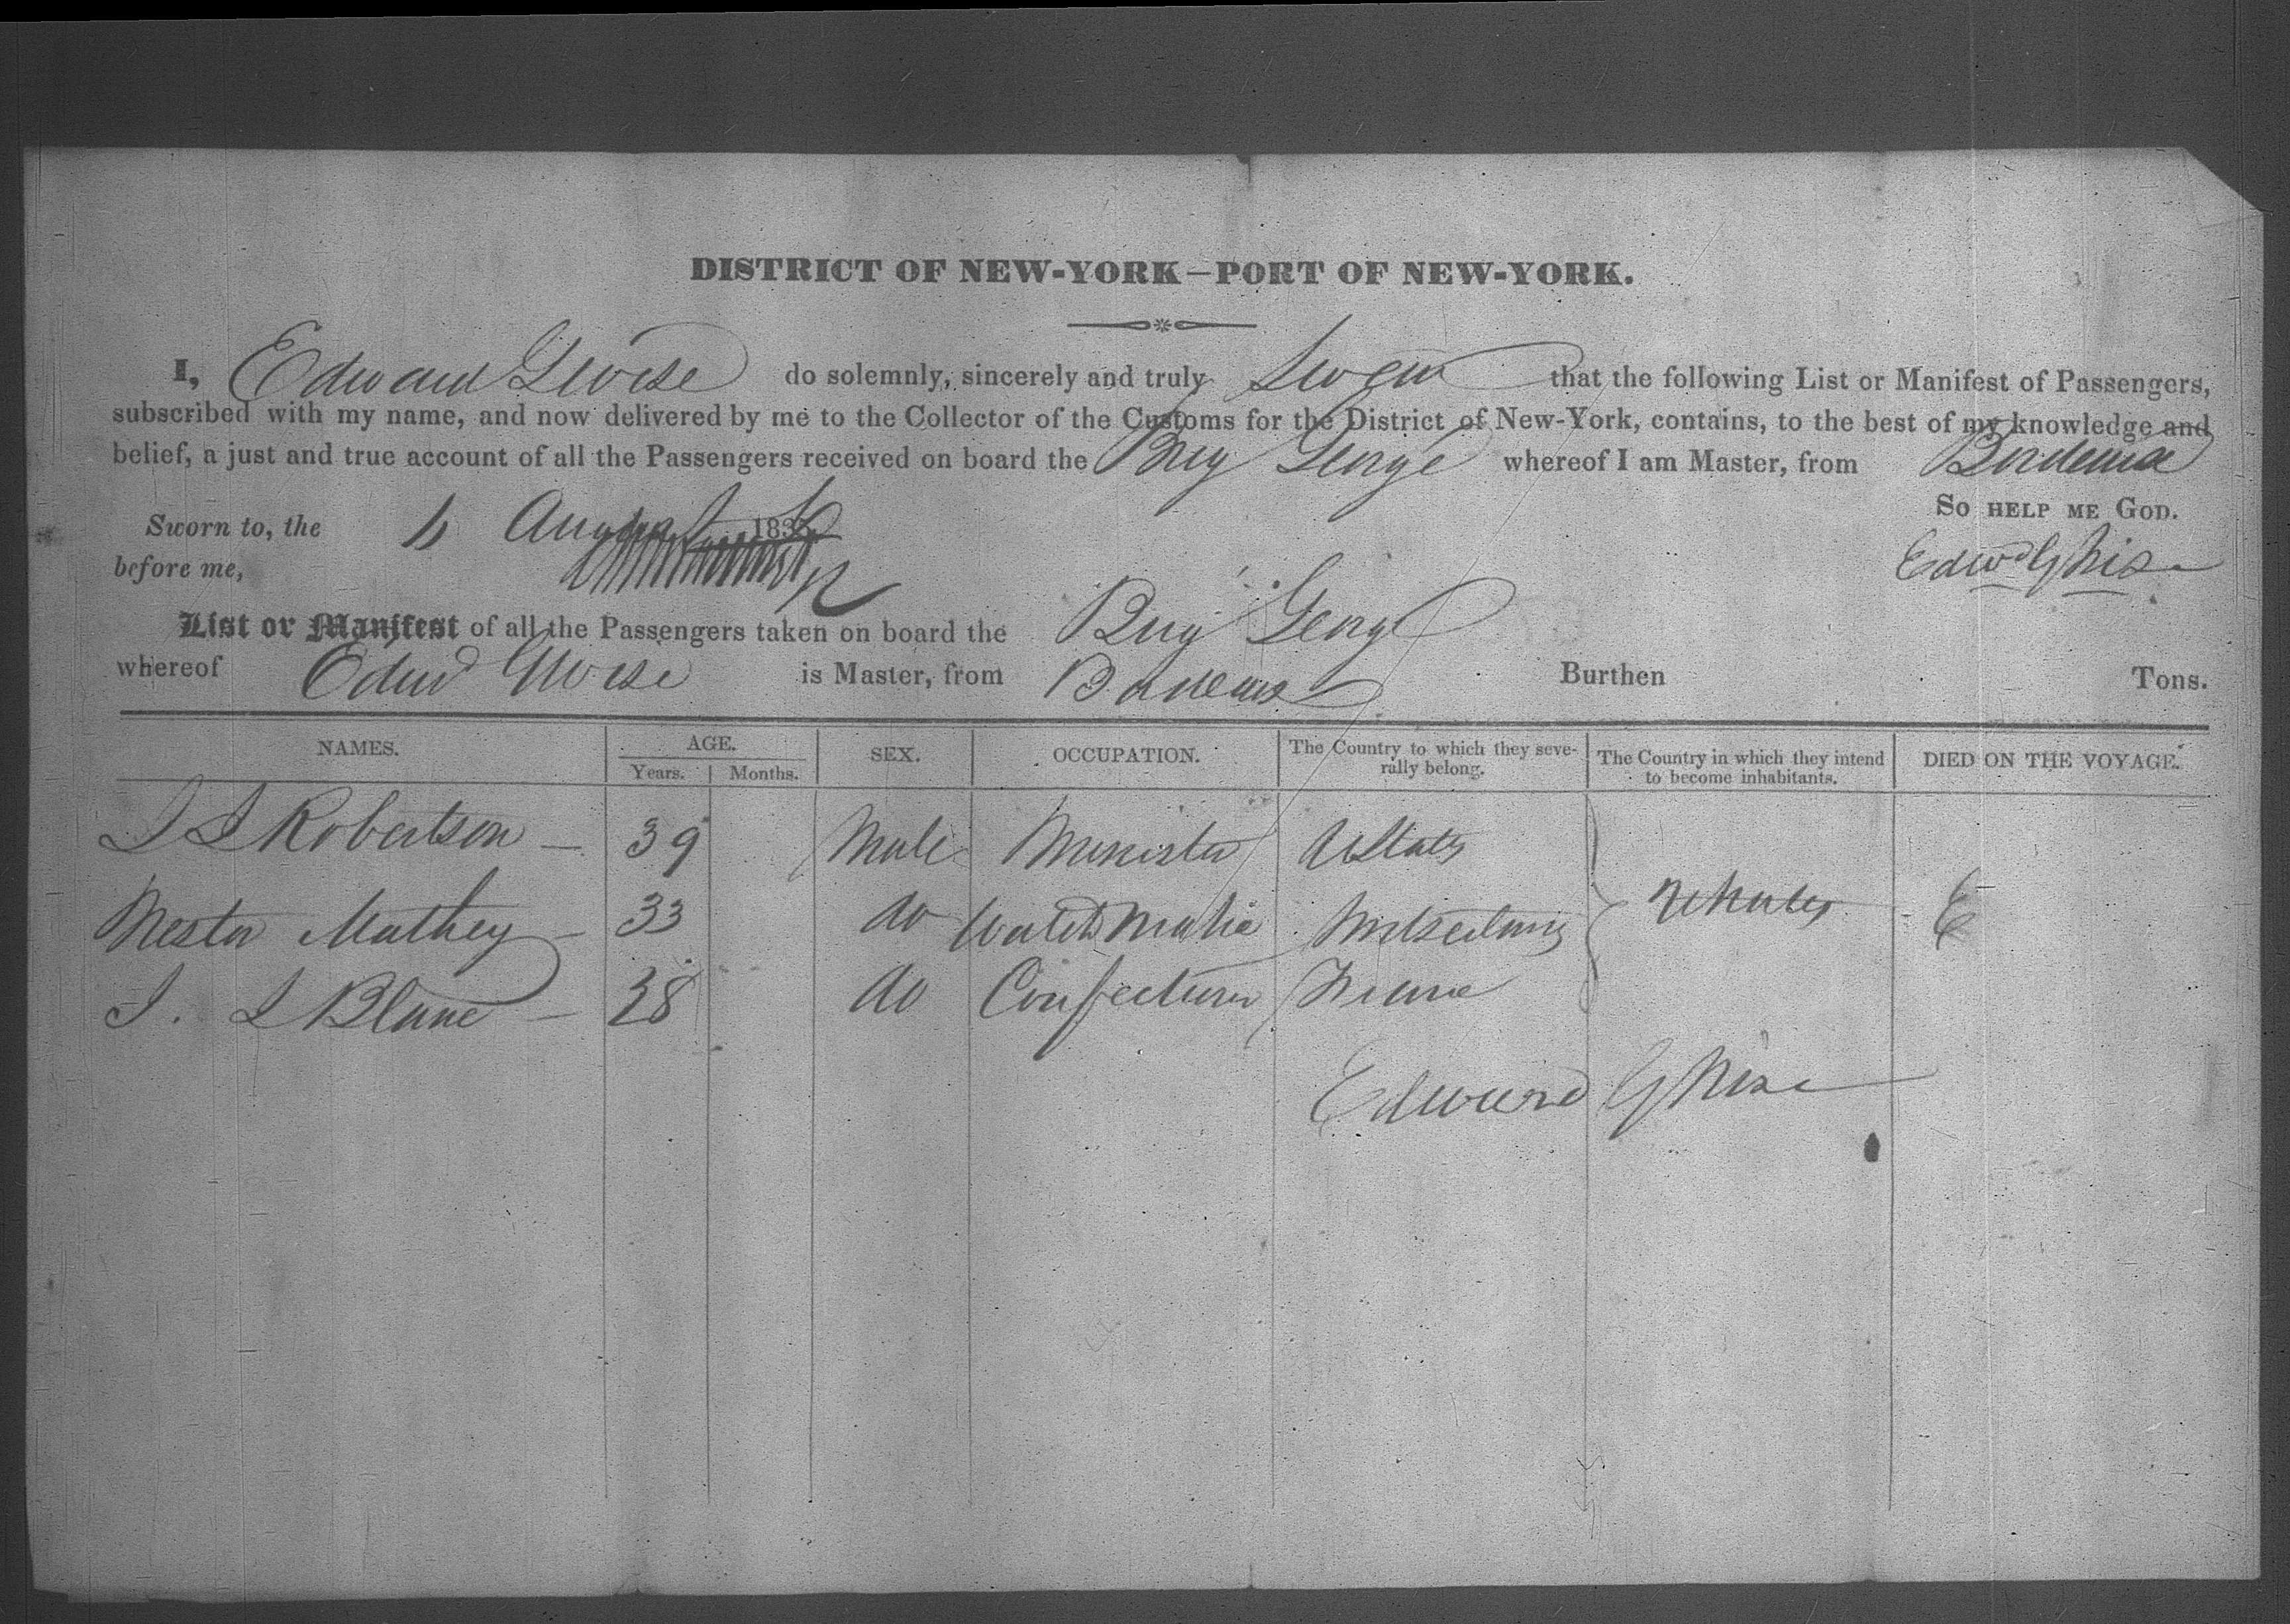 DISTRICT OF NEW-YORK—PORT OF NEW-YORK.
I, Edward do solemnly, sincerely and truly Swear that the following List or Manifest of Passengers,
subscribed with my name, and now delivered by me to the Collector of the Customs for the District of New-York, contains, to the best of my knowledge and
belief, a just and true account of all the Passengers received on board the Brig George whereof I am Master, from Bordeaux
So HELP ME GOD.
Sworn to, the August 183
before me,
Edwd
List or Manifest of all the Passengers taken on board the Brig George
whereof Edwd is Master, from Bordeaux Burthen Tons.
NAMES. AGE. SEX. OCCUPATION. The Country to which they seve- The Country in which they intend DIED ON THE VOYAGE.
Years. Months. rally belong. to become inhabitants.
Robertson — 39 Male Minister UStates
Nestor Mathey — 33 do Watchmake UStates
Blanc — 38 do France
Edward